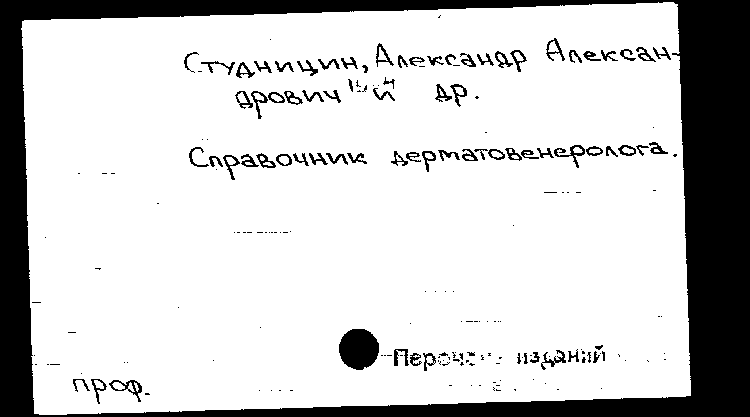 Студницин, Александр Алексан-
дрович и др.
Справочник дерматовенеролога.
изданий
проф.